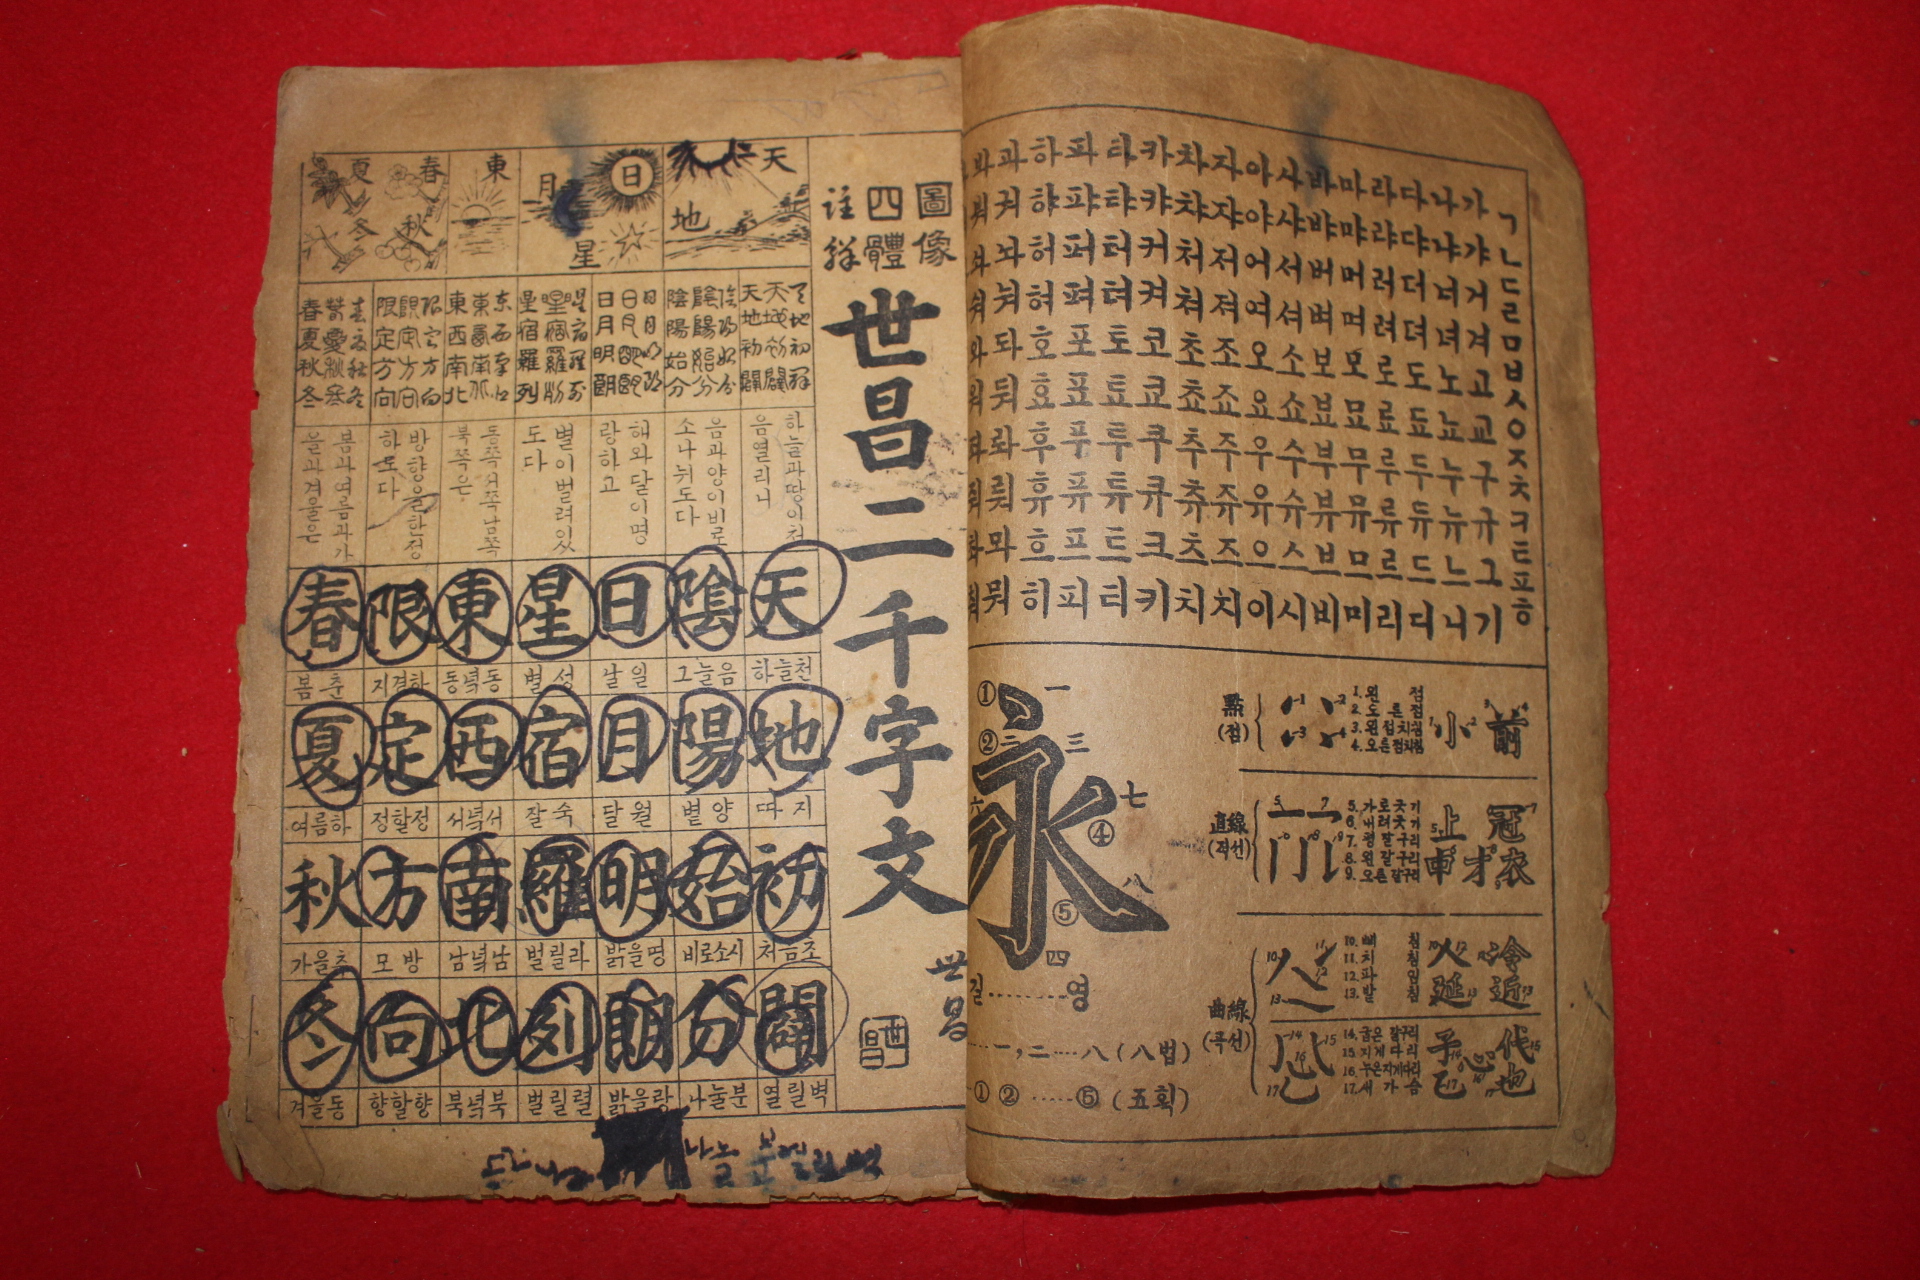 ㄱㄴㄷㄹㅁㅂㅅㅇㅈㅊㅋㅌㅍㅎ
가나다라마바사아자차카타파하과
갸냐댜랴먀뱌샤야쟈챠캬탸퍄햐궈
거너더러머버서어저처커터퍼허놔
겨녀뎌려며벼셔여져쳐켜텨펴혀눠
고노도로모보소오조초코토포호돠
교뇨됴료묘뵤쇼요죠쵸쿄툐표효둬
구누두루무부수우주추쿠투푸후롸
규뉴듀류뮤뷰슈유쥬츄큐튜퓨휴뤄
그느드르므브스으즈츠크트프흐뫄
기니디리미비시이지치키티피히뭐
永
① 一
② 二 三
六 七
④
八
⑤
四
영
一, 二 … 八 (八법)
① ② …… ⑤ (五획)
點
(점)
1. 왼 점
2. 오른 점
3. 왼섭치점
4. 오른점치점
小 前
直線
(직선)
5. 가로긋기
6. 내려긋기
7. 평갈구리
8. 왼갈구리
9. 오른갈구리
上 冠
車 才 衣
曲線
(곡선)
10. 삐침
11. 치침
12. 파임
13. 발침
人 冷
延 近
14. 굽은갈구리
15. 지게다리
16. 누은지게다리
17. 새가슴
予 代
己 心 地
圖像
四體
註解
世昌二千字文
世昌
天 地
日 月 星
東
春 夏 秋 冬
天地初闢
陰陽始分
日月明朗
星宿羅列
東西南北
限定方向
春夏秋冬
하늘과땅이처음열리니
음과양이비로소나뉘도다
해와달이명랑하고
별이벌려있도다
동쪽서쪽남쪽북쪽은
방향을한정하도다
봄과여름과가을과겨울은
天 하늘천
地 따지
初 처음초
闢 열릴벽
陰 그늘음
陽 볕양
始 비로소시
分 나눌분
日 날일
月 달월
明 밝을명
朗 밝을랑
星 별성
宿 잘숙
羅 벌릴라
列 벌릴렬
東 동녘동
西 서녘서
南 남녘남
北 북녘북
限 지경한
定 정할정
方 모방
向 향할향
春 봄춘
夏 여름하
秋 가을추
冬 겨울동
나눌분열릴벽